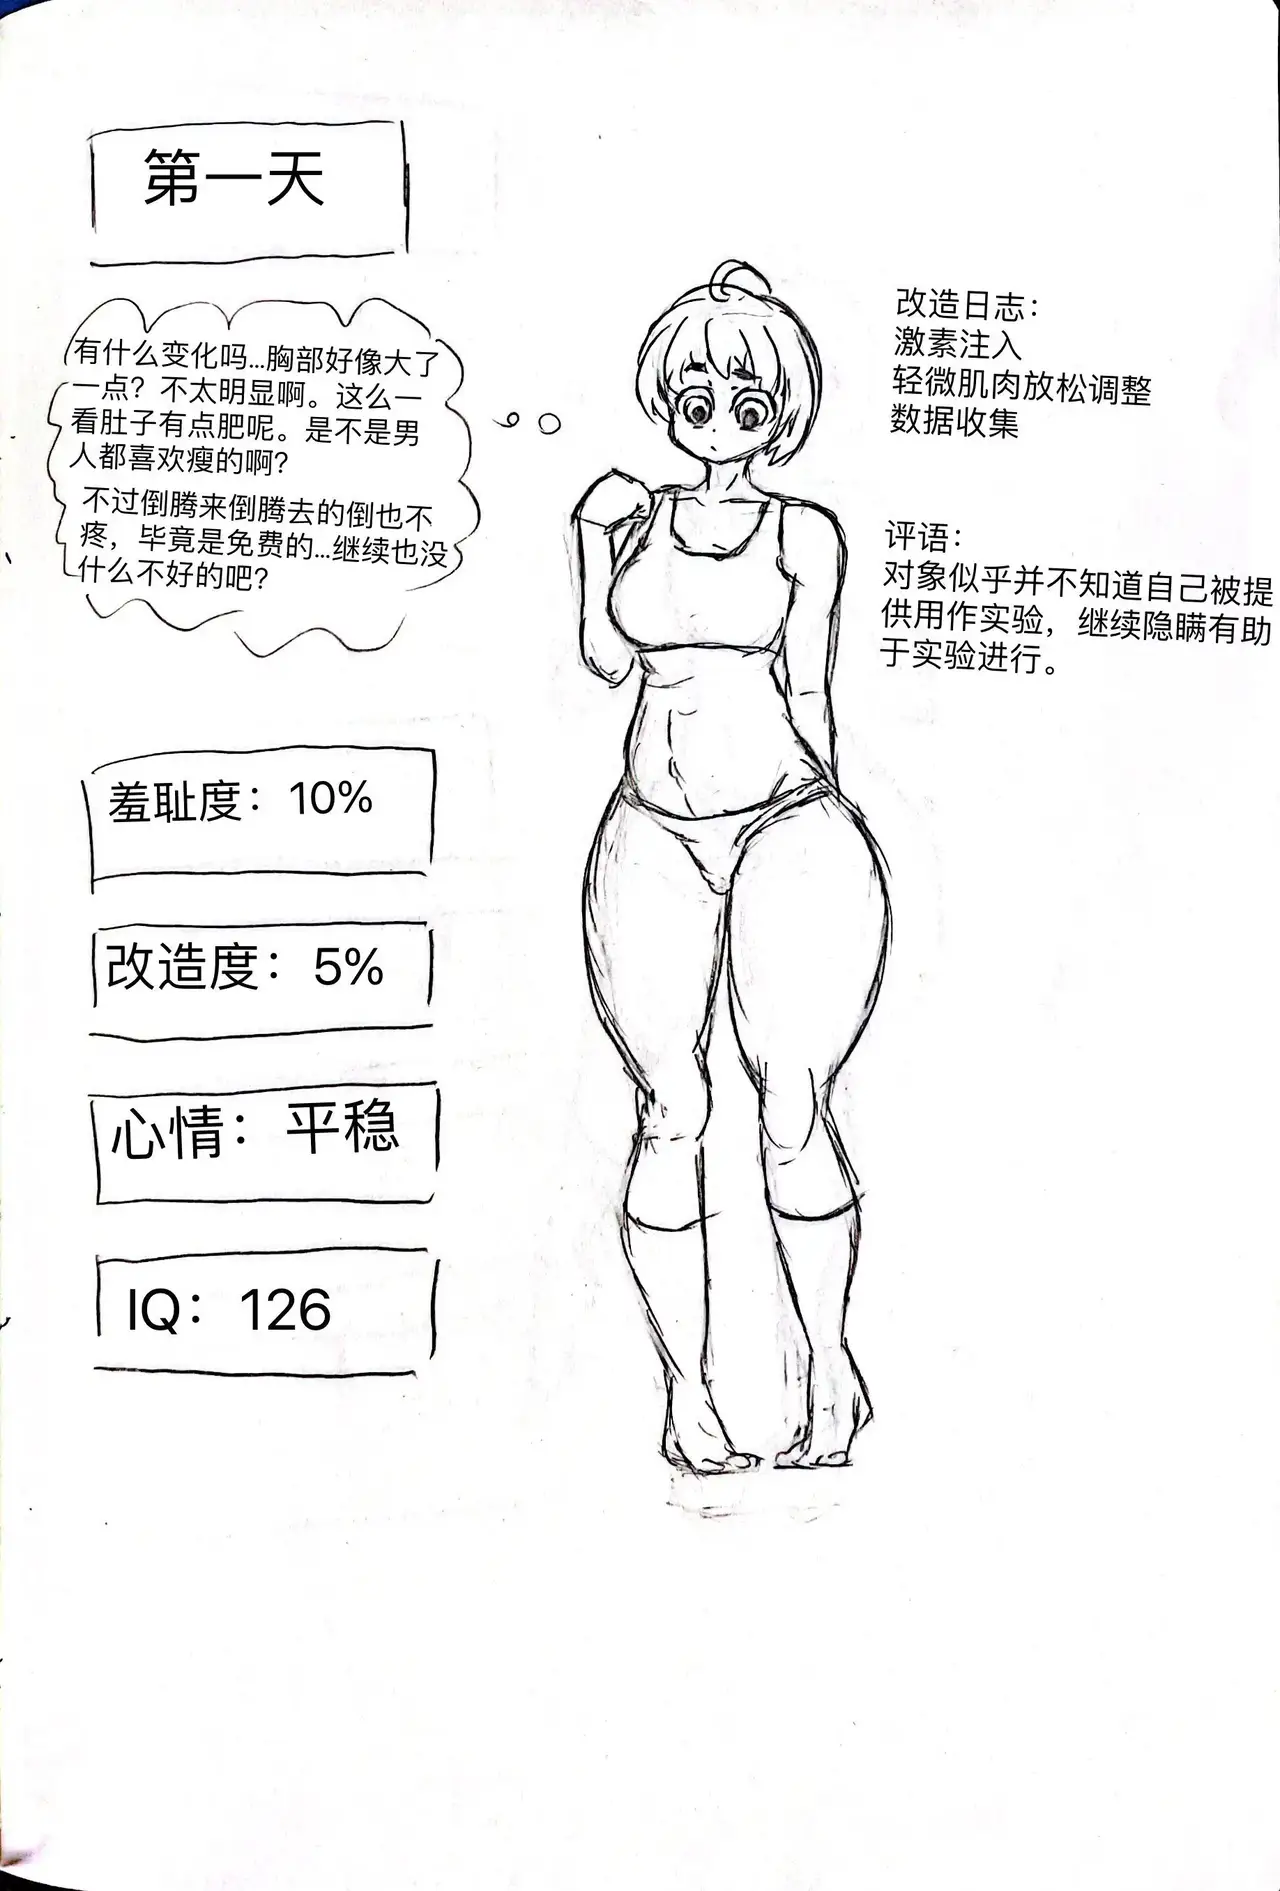 第一天
有什么变化吗...胸部好像大了
一点？不太明显啊。这么一
看肚子有点肥呢。是不是男
人都喜欢瘦的啊？
不过倒腾来倒腾去的倒也不
疼，毕竟是免费的...继续也没
什么不好的吧？
改造日志：
激素注入
轻微肌肉放松调整
数据收集
评语：
对象似乎并不知道自己被提
供用作实验，继续隐瞒有助
于实验进行。
羞耻度：10%
改造度：5%
心情：平稳
IQ：126